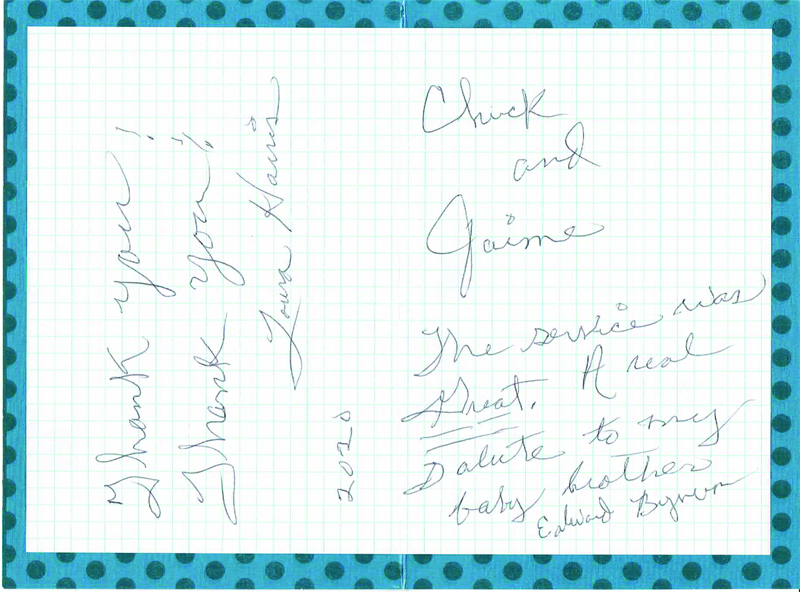 Chuck
and
Jaime
The service was
Great. A real
Salute to my
baby brother
Edward
Thank you!
Thank you!
Harris
2020